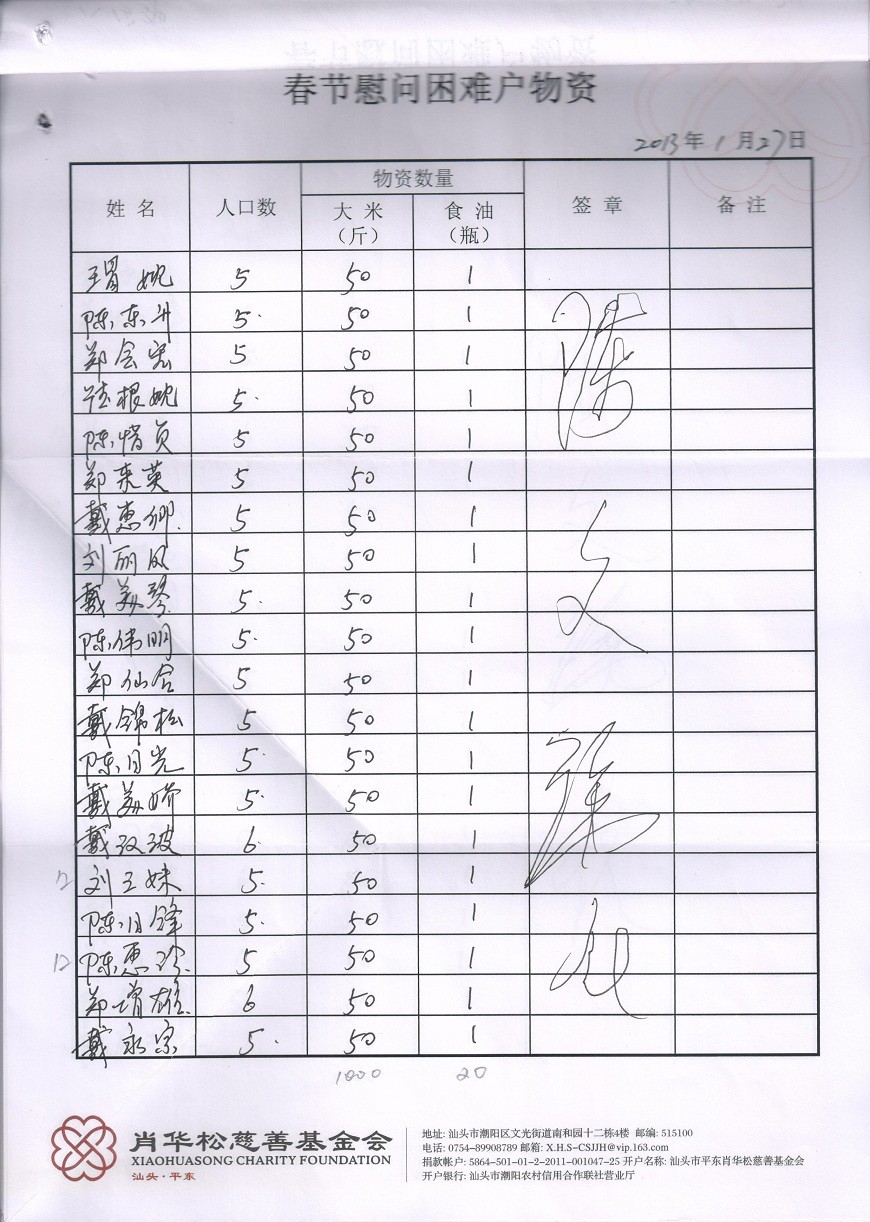 春节慰问困难户物资
2013年1月27日
姓 名 人口数 物资数量 签 章 备 注
大 米 食 油
（斤） （瓶）
5 50 1
陈东升 5. 50 1
郑会宏 5 50 1
5. 50 1
陈惜贞 5 50 1
郑来英 5 50 1
戴惠卿. 5 50 1
刘丽凤 5 50 1
戴美琴 5. 50 1
陈伟明 5. 50 1
郑仙合 5 50 1
戴锦松 5 50 1
陈月光 5. 50 1
戴美娇 5. 50 1
戴汉波 6. 50 1
刘玉妹 5. 50 1
陈日锋 5. 50 1
陈惠玲. 5 50 1
郑增雄. 6 50 1
戴永宗 5. 50 1
1000 20
肖华松慈善基金会
XIAOHUASONG CHARITY FOUNDATION
汕头·平东
地址: 汕头市潮阳区文光街道南和园十二栋4楼 邮编: 515100
电话: 0754-89908789 邮箱: X.H.S-CSJJH@vip.163.com
捐款帐户: 5864-501-01-2-2011-001047-25 开户名称: 汕头市平东肖华松慈善基金会
开户银行: 汕头市潮阳农村信用合作联社营业厅